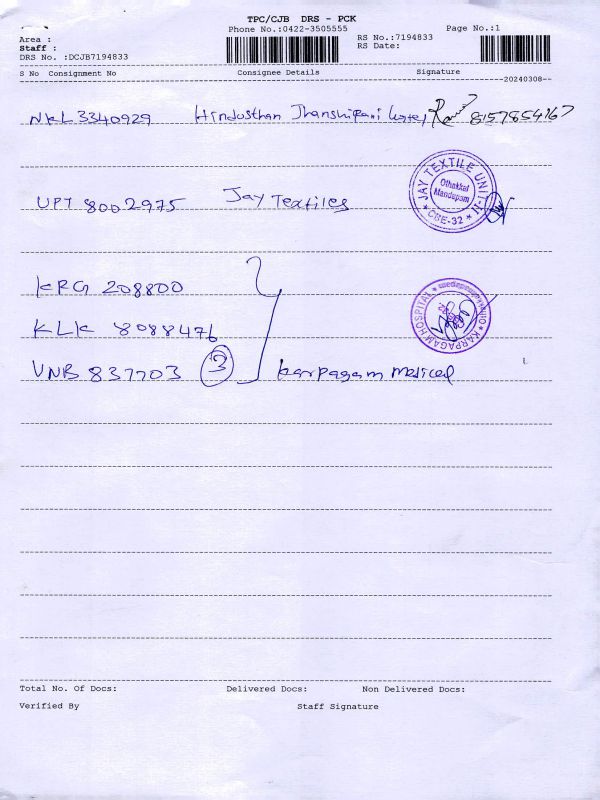 TPC/CJB DRS - PCK
Phone No.:0422-3505555
Page No.:1
Area :
Staff :
DRS No. :DCJB7194833
RS No.:7194833
RS Date:
S No Consignment No Consignee Details Signature
20240308
NKL 3340929 Hindusthan 8157854167
UPT 8002975 Jay Textiles
JAY TEXTILE UNIT-II
Othakkal
Mandapam
* CBE-32 *
KRG 208800
KLK 8088476
VNB 837703 3 Karpagam Medical
KARPAGAM HOSPITAL
Total No. Of Docs: Delivered Docs: Non Delivered Docs:
Verified By Staff Signature